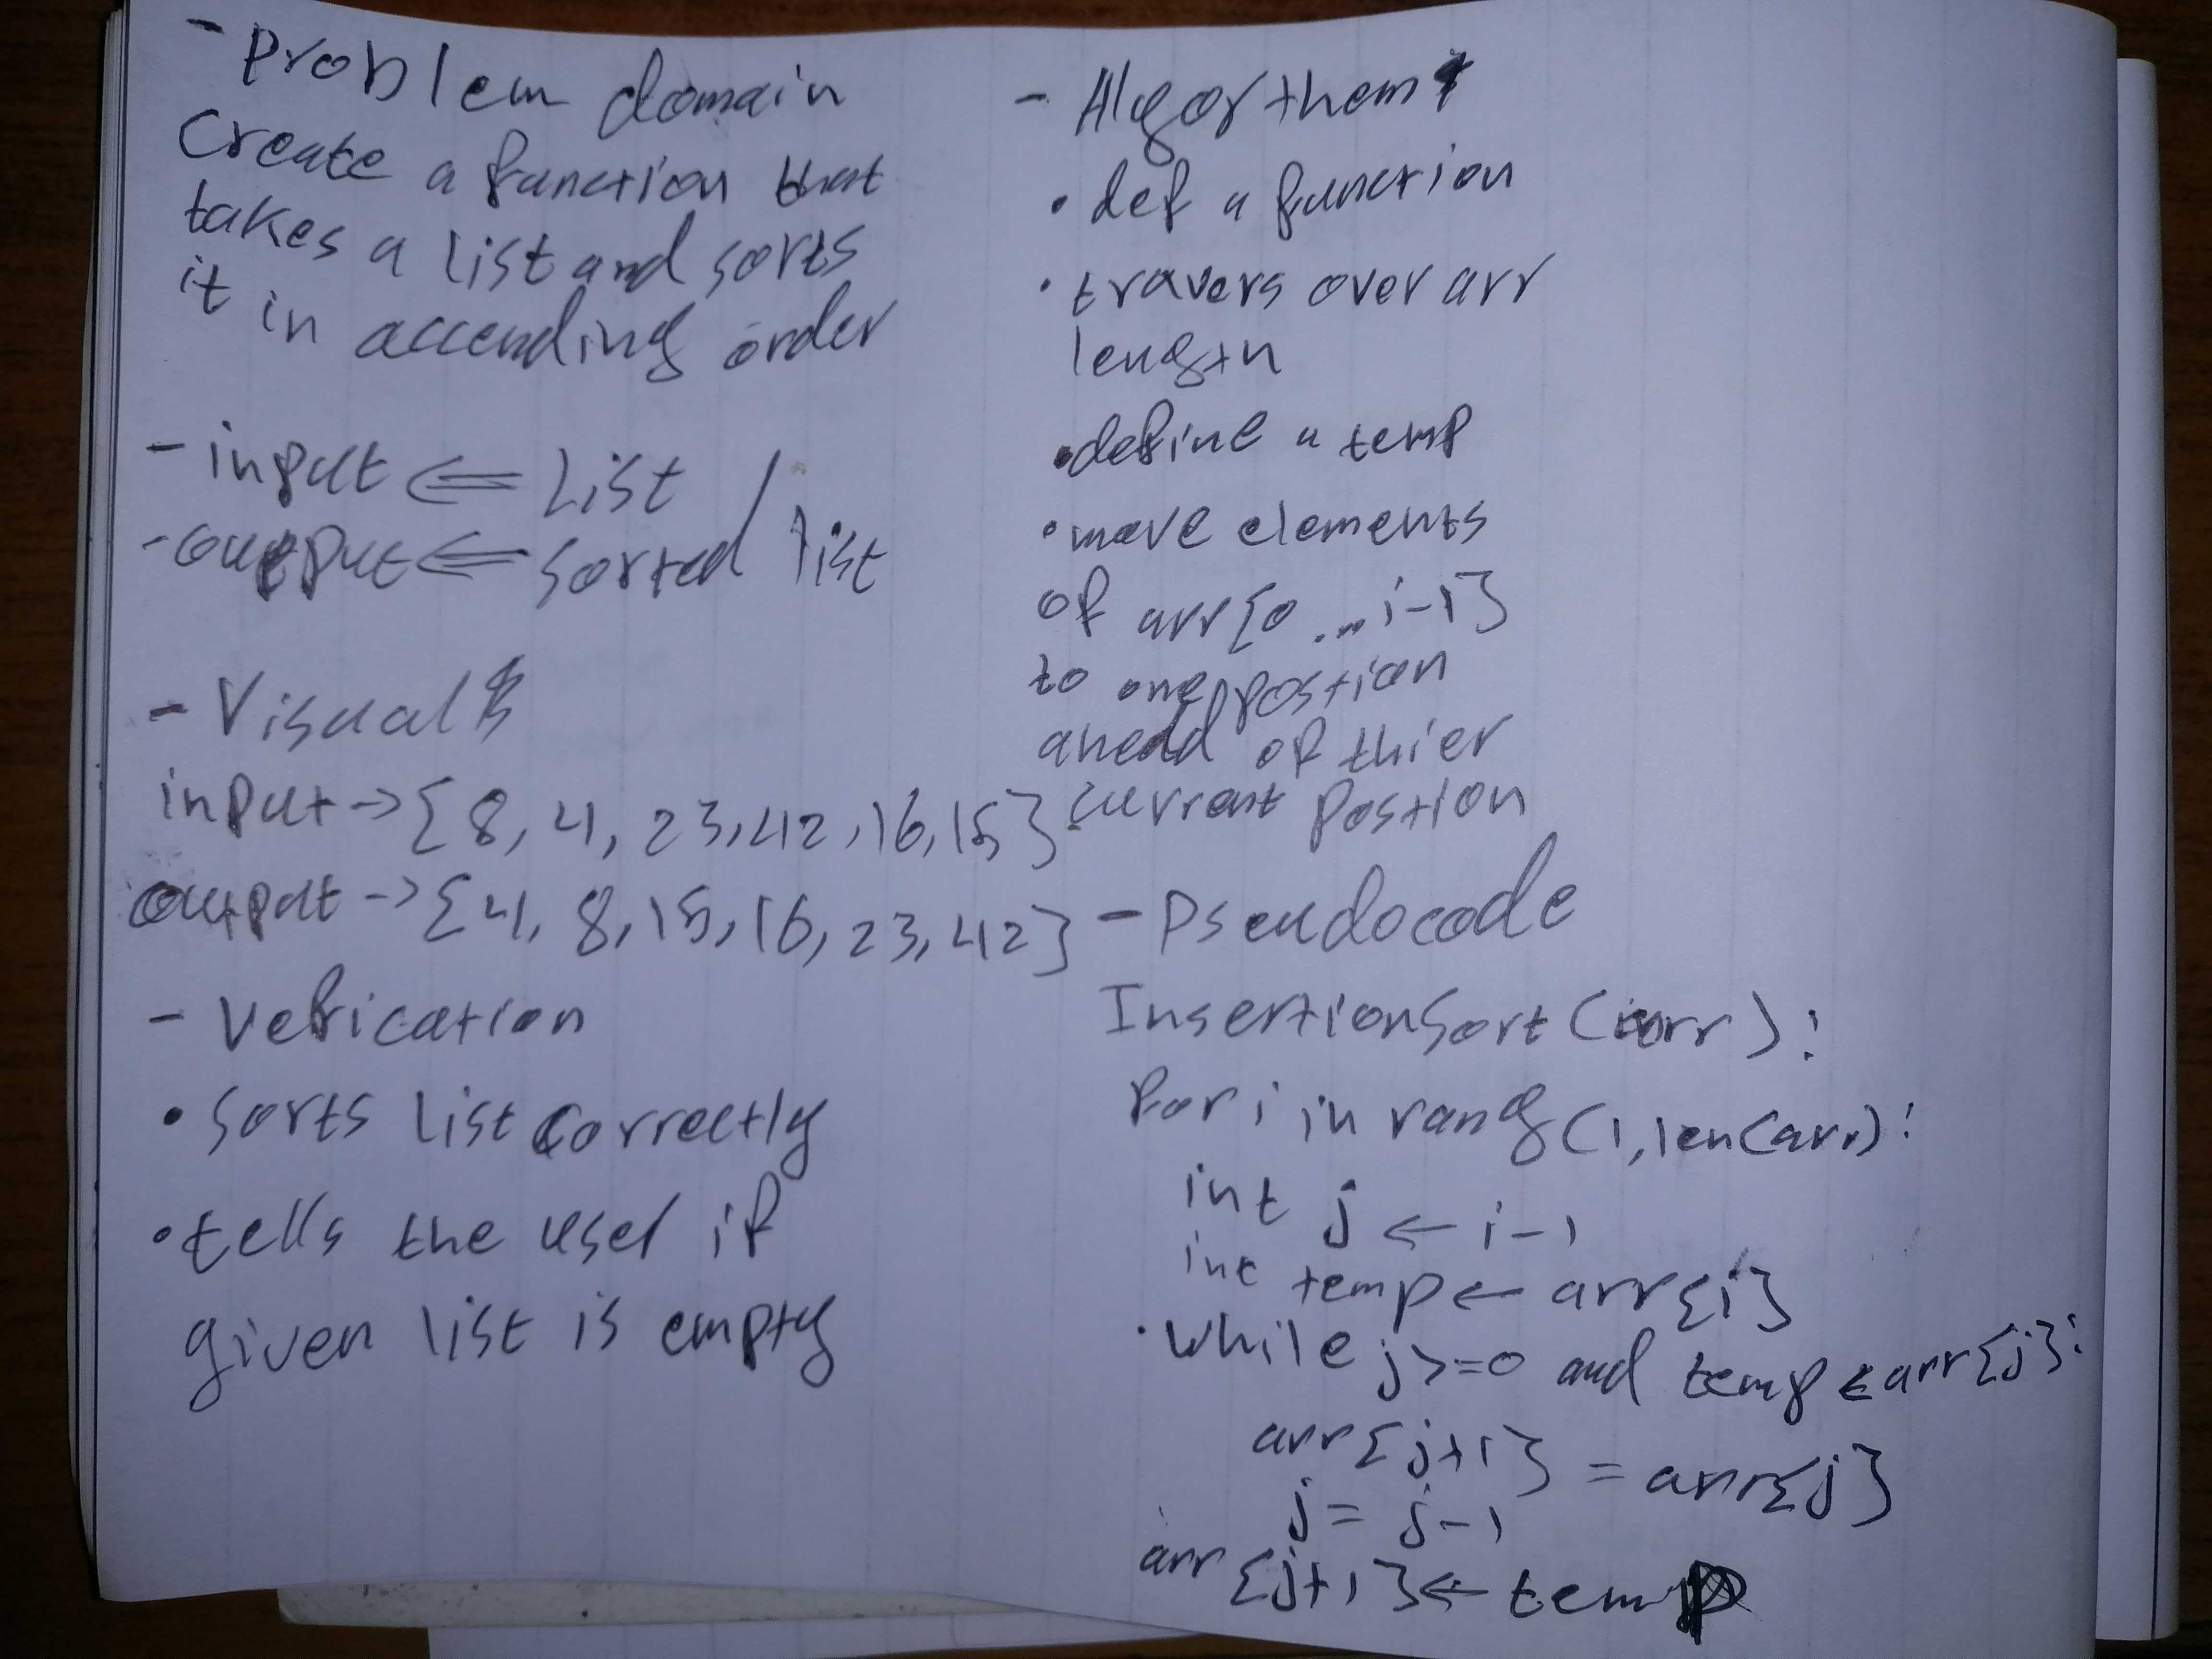 - Problem domain
Create a function that
takes a list and sorts
it in accending order
- input ⇐ List
- output ⇐ sorted list
- Visual
input → [8, 4, 23, 42, 16, 15]
output → [4, 8, 15, 16, 23, 42]
- Vefication
• Sorts list correctly
• tells the user if
given list is empty
- Algorthem
• def a function
• travers over arr
length
• define a temp
• move elements
of arr[0 ... i-1]
to one postion
ahead of thier
current postion
- Pseudocode
InsertionSort (arr):
for i in rang (1, len(arr):
int j ← i-1
int temp ← arr[i]
• while j >= 0 and temp < arr[j]:
arr[j+1] = arr[j]
j = j-1
arr[j+1] ← temp